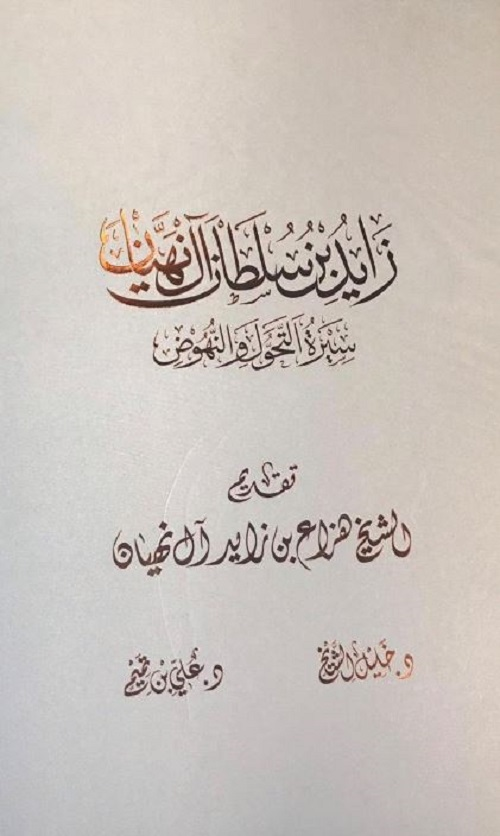 زَايِد بْنُ سُلْطَان آل نَهْيَان
سِيْرَةُ التَّحَوُّلِ وَالنُّهُوْضِ
تقديم
الشيخ هزاع بن زايد آل نهيان
د. خَلِيْل الشَّيْخ
د. عَلِيّ بْن تَمِيْم